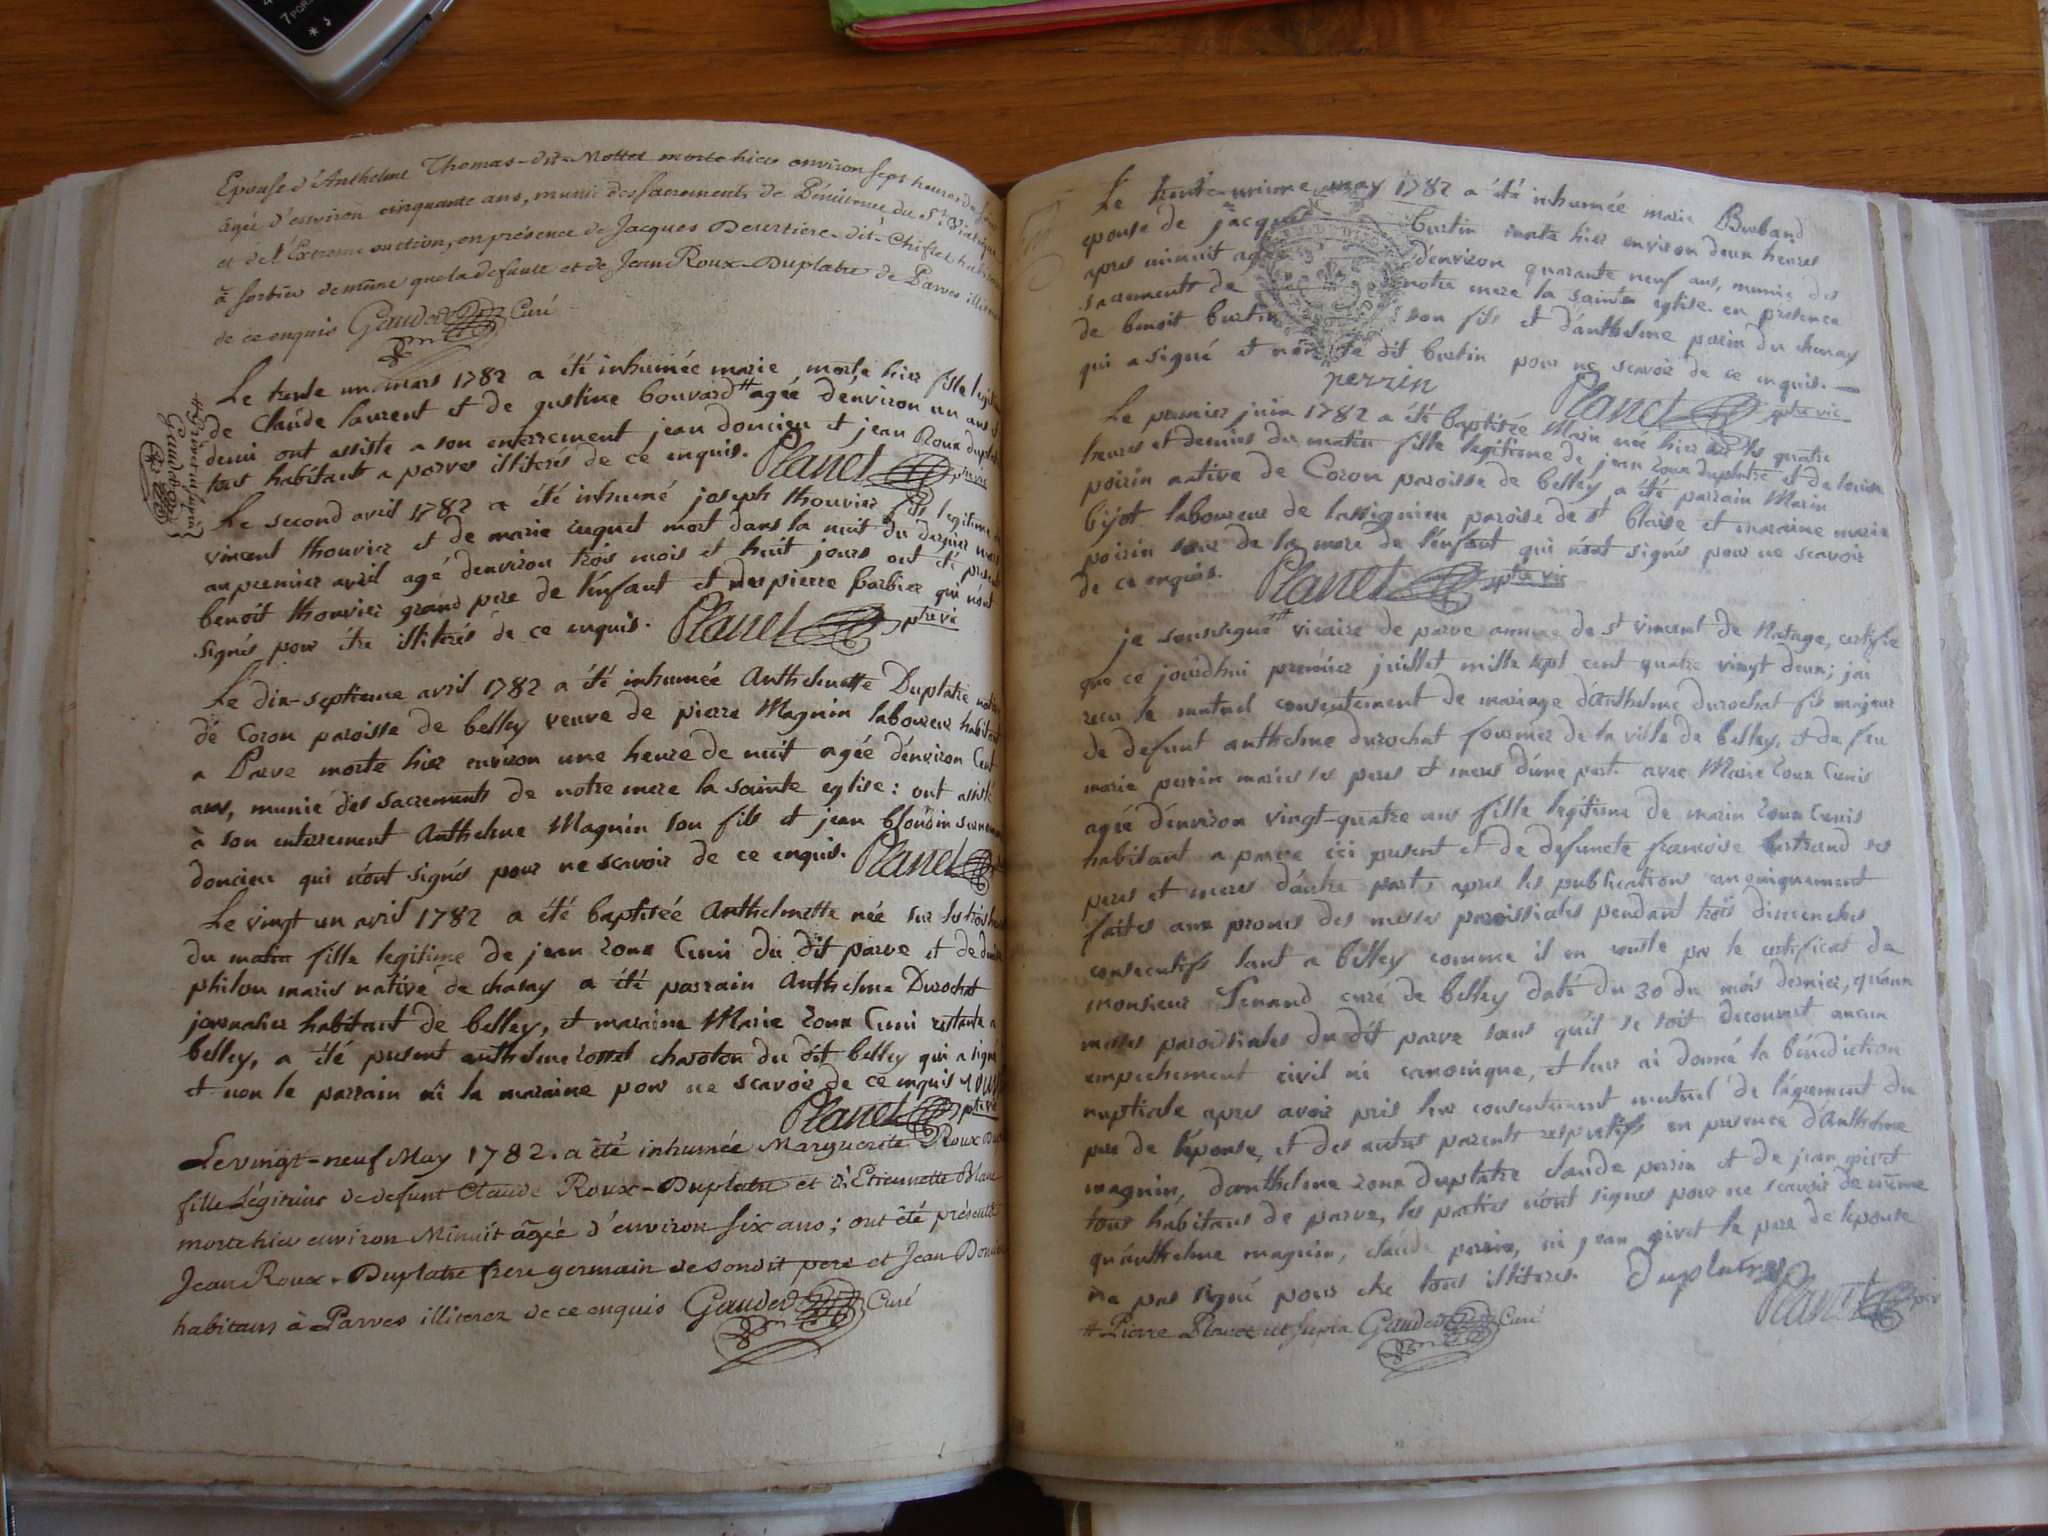 7PQRS
*
Epouse d'Anthelme Thomas-dit-Mottet morte hier environ sept heures du soir
âgée d'environ cinquante ans, munie des sacrements de Pénitence du St Viatique
et de l'Extreme onction, en présence de Jacques Desertiere-dit-Chiflet
à sorbieu de même que la defunte et de Jean Roux-Duplatre de Parves
de ce enquis Gauded Curé
Le trente un mars 1782 a été inhumée marie morte hier fille
de Claude laurent et de gustine bouvard # agée d'environ un ans
demi ont assisté a son enterrement jean doncieu et jean Roux
tous habitants a parves illiterés de ce enquis. Planet
Gauded
Le second avril 1782 a été inhumé joseph thouvier fils legitime
vincent thouvier et de marie cuquet mort dans la nuit du dernier mars
au premier avril agé denviron trois mois et huit jours ont été
benoit thouvier grand pere de l'enfant et pierre barbier qui n'ont
signés pour étre illiterés de ce enquis. Planet ptre vi
Le dix-septieme avril 1782 a été inhumée Anthelmette Duplatre
de Coron paroisse de belley veuve de pierre Magnin laboureur
a Parve morte hier environ une heure de nuit agée d'environ Cent
ans, munie des sacrements de notre mere la sainte eglise: ont assisté
à son enterrement Anthelme Magnin son fils et jean
doncieu qui n'ont signés pour ne scavoir de ce enquis. Planet
Le vingt un avril 1782 a été baptisée Anthelmette née sur les trois
du matin fille legitime de jean roux Cuni du dit parve et de
philon mariés native de a été parrain Anthelme Durochat
journalier habitant de belley, et maraine Marie roux Cuni
belley, a été present anthelme charolon du dit belley qui a signé
et non le parrain ni la maraine pour ne scavoir de ce enquis
Planet ptre vi
Le vingt-neuf May 1782. a été inhumée Marguerite Roux
fille Légitime de defunt Claude Roux-Duplatre et d'Etiennette Blanc
morte hier environ Minuit agée d'environ six ans; ont été présents
Jean Roux-Duplatre frere germain de son dit pere et Jean
habitans à Parves illiterez de ce enquis Gauded Curé
Le trente-unieme may 1782 a été inhumée marie
epouse de jacques burtin morte hier environ deux heures
apres minuit agée d'environ quarante neuf ans, munie des
sacrements de notre mere la sainte eglise. en presence
de benoit burtin son fils et d'anthelme perin du
qui a signé et non le dit burtin pour ne scavoir de ce enquis.
perrin Planet ptre vic
Le premier juin 1782 a été baptisée Marie née hier sur les quatre
heures et demies du matin fille legitime de jean roux duplatre et de louise
poirin native de Coron paroisse de belley a été parrain Marin
bijot laboureur de paroisse de st blaise et maraine marie
poirin sœur de la mere de l'enfant qui n'ont signés pour ne scavoir
de ce enquis. Planet ptre vic
je soussigné # vicaire de parve annexe de st vincent de Natage, certifie
que ce jourdhui premier juillet mille sept cent quatre vingt deux; jai
recu le mutuel consentement de mariage d'anthelme durochat fils majeur
de defunt anthelme durochat fournier de la ville de belley, et de feu
marie perrin mariés ses peres et meres d'une part. avec Marie roux Cunis
agée d'environ vingt-quatre ans fille legitime de marin roux Cunis
habitant a parve ici present et de defuncte francoise bertrand ses
peres et meres d'autre part, apres les publications
faites aux prones des messes paroissiales pendant trois dimenches
consecutifs tant a belley comme il en conste par le certificat de
monsieur curé de belley daté du 30 du mois dernier, qu'aux
messes paroissiales du dit parve sans qu'il se soit decouvert aucun
empechement civil ni canonique, et leur ai donné la bénédiction
nuptiale apres avoir pris leur consentement mutuel de l'agrement du
pere de l'épouse, et des autres parents respectifs en presence d'Anthelme
magnin, d'anthelme roux duplatre claude perrin et de jean
tous habitans de parve, les parties n'ont signés pour ne scavoir de même
qu'anthelme magnin, claude perrin, ni jean le pere de l'epouse
n'a pas signé pour etre tous illiterés. Duplatre
Planet
# Pierre Planet ut supra Gauded Curé